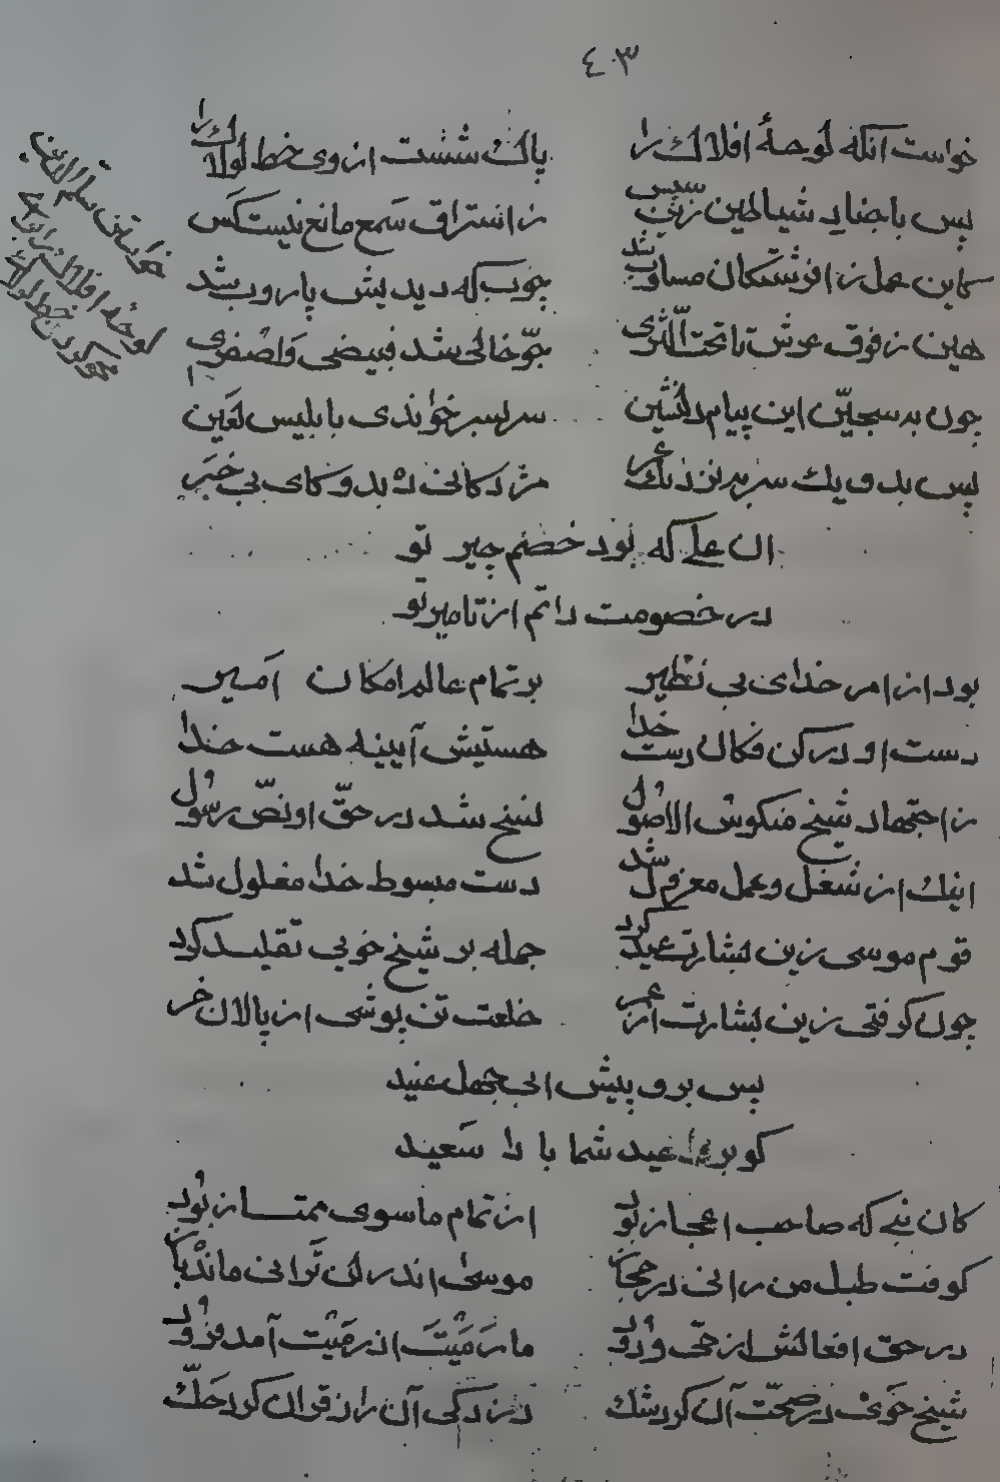 ٤٠٣
خواست آنکه لوحهٔ افلاك را پاك شست از وی خط لولاك را
پس باضاید شیاطین زین سپس ز استراق سمع مانع نیست کس
کاین عمل ز افرشتگان مسلوب شد چوب که دیدیش پاروب شد
هین ز فوق عرش تا تحت الثری جوّ خالی شد فبیضی واصفری
چون به سجیّن این پیام دلنشین سربسر خواندی بابلیس لعین
پس بدو یك سر به نزدیك عمر مژدکانی ده بدو کای بی خبر
ان علی که بود خصم چیر تو
در خصومت دائم از تامیر تو
بود از امر خدای بی نظیر بر تمام عالم امکان امیر
دست او در کن فکان دست خدا هستیش آیینه هست خدا
ز اجتهاد شیخ منکوس الاصول نسخ شد در حقّ او نصّ رسول
اینك از شغل و عمل معزول شد دست مبسوط خدا مغلول شد
قوم موسی زین بشارت عید کرد جمله بر شیخ خوبی تقلید کرد
چون گرفتی زین بشارت از عمر خلعت تن پوشی از پالان خر
پس برو پیش ابی جهل عنید
کو بر عید شما بادا سعید
کان نبی که صاحب اعجاز بود از تمام ماسوی ممتاز بود
کوفت طبل من رانی در حجاز موسی اندر لن ترانی ماند باز
در حق افعالش از حی ودود ما رمیت اذ رمیت آمد فرود
شیخ خوئی در صحّت آن کرد شك دزدکی آن را ز قران کرد حكّ
خواستن
لوحهٔ افلاك را
محو کردن خط لولاك